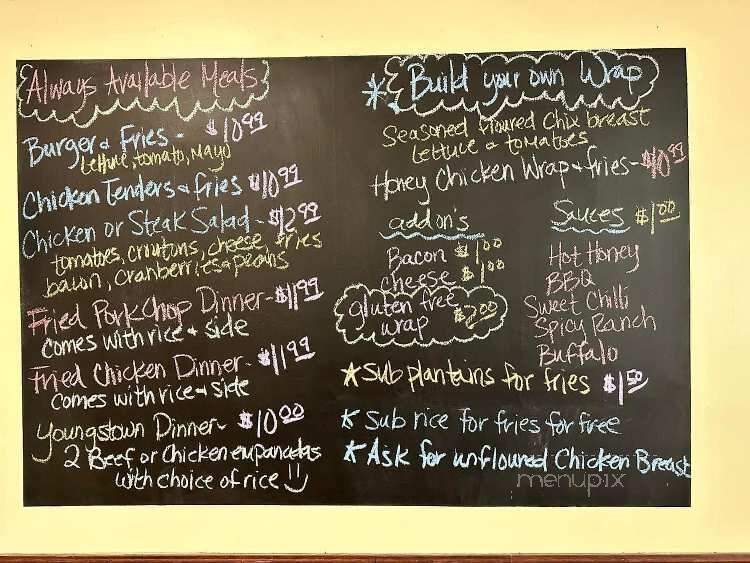 Always Available Meals
Burger & Fries - $10.99
Lettuce, tomato, Mayo
Chicken Tenders & fries $10.99
Chicken or Steak Salad - $12.99
tomatoes, croutons, cheese, fries
bacon, cranberries & pecans
Fried Pork Chop Dinner - $11.99
comes with rice & side
Fried Chicken Dinner - $11.99
comes with rice & side
Youngstown Dinner - $10.00
2 Beef or Chicken empanadas
with choice of rice
* Build your own Wrap
Seasoned floured Chix breast
lettuce & tomatoes
Honey Chicken Wrap & fries - $10.99
add on's
Bacon $1.00
cheese $1.00
gluten free
wrap $2.00
Sauces $1.00
Hot Honey
BBQ
Sweet Chilli
Spicy Ranch
Buffalo
* Sub plantains for fries $1.50
* Sub rice for fries for free
* Ask for unfloured Chicken Breast
menupix